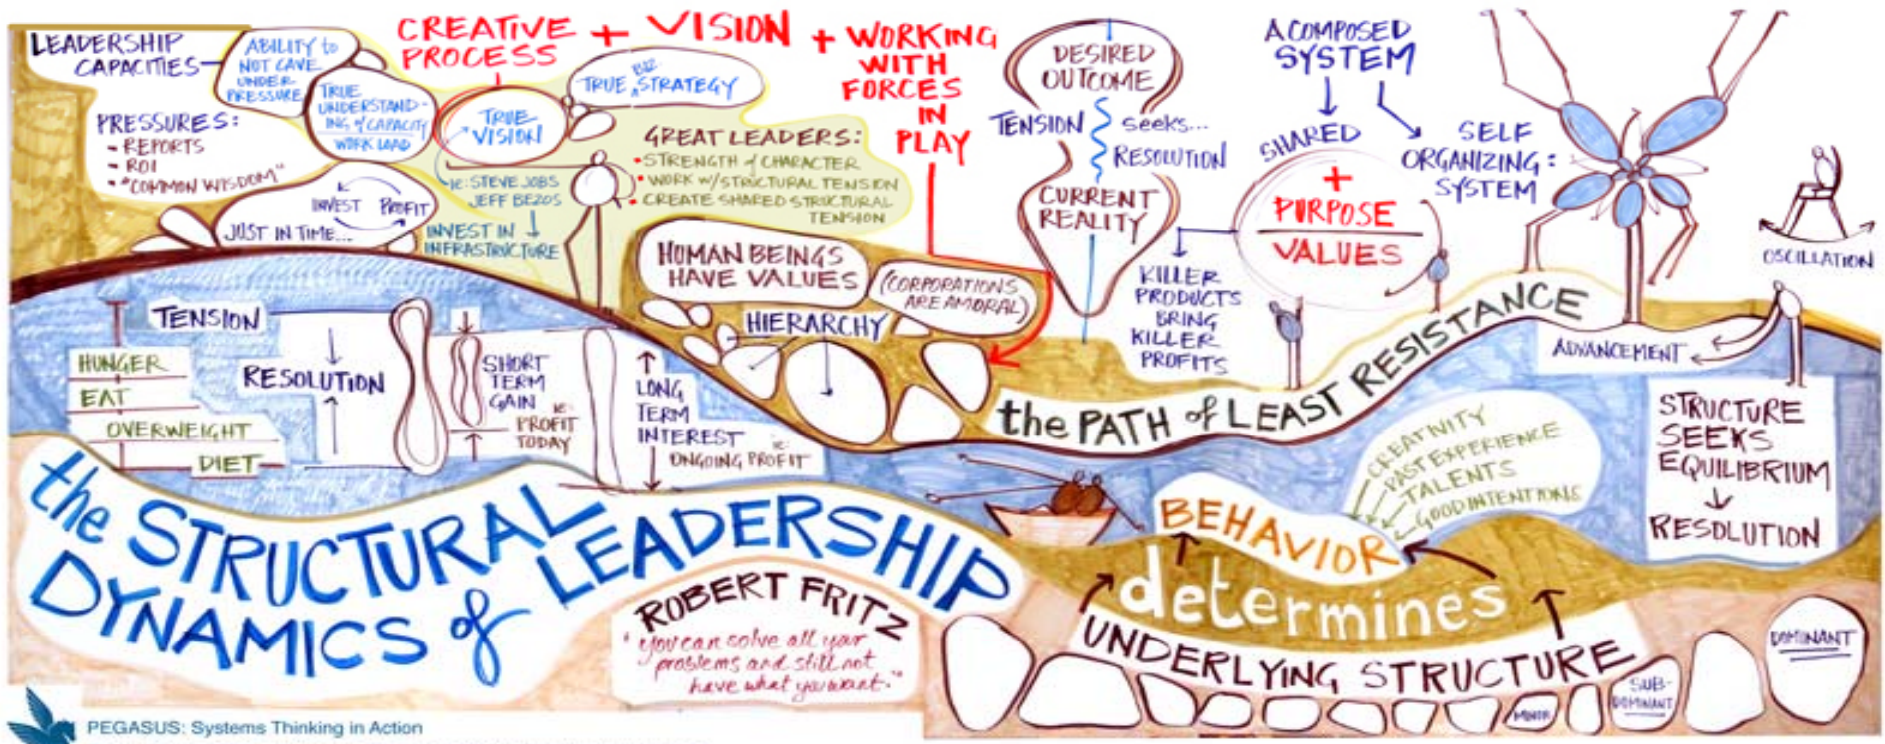 LEADERSHIP
CAPACITIES
ABILITY to
NOT CAVE
UNDER
PRESSURE
TRUE
UNDERSTAND-
ING of CAPACITY
WORK LOAD
PRESSURES:
- REPORTS
- ROI
- "COMMON WISDOM"
INVEST PROFIT
JUST IN TIME...
CREATIVE
PROCESS
+ VISION
+ WORKING
WITH
FORCES
IN
PLAY
TRUE
VISION
TRUE BIZ STRATEGY
IE: STEVE JOBS
JEFF BEZOS
INVEST IN
INFRASTRUCTURE
GREAT LEADERS:
• STRENGTH of CHARACTER
• WORK W/STRUCTURAL TENSION
• CREATE SHARED STRUCTURAL
TENSION
HUMAN BEINGS
HAVE VALUES
(CORPORATIONS
ARE AMORAL)
HIERARCHY
DESIRED
OUTCOME
TENSION
seeks...
RESOLUTION
CURRENT
REALITY
A COMPOSED
SYSTEM
SHARED
+
PURPOSE
VALUES
SELF
ORGANIZING:
SYSTEM
KILLER
PRODUCTS
BRING
KILLER
PROFITS
OSCILLATION
ADVANCEMENT
the PATH of LEAST RESISTANCE
TENSION
RESOLUTION
HUNGER
EAT
OVERWEIGHT
DIET
SHORT
TERM
GAIN
IE:
PROFIT
TODAY
LONG
TERM
INTEREST
IE:
ONGOING PROFIT
STRUCTURE
SEEKS
EQUILIBRIUM
RESOLUTION
CREATIVITY
PAST EXPERIENCE
TALENTS
GOOD INTENTIONS
BEHAVIOR
determines
UNDERLYING STRUCTURE
MINOR
SUB-
DOMINANT
DOMINANT
the STRUCTURAL
DYNAMICS of LEADERSHIP
ROBERT FRITZ
"you can solve all your
problems and still not
have what you want."
PEGASUS: Systems Thinking in Action